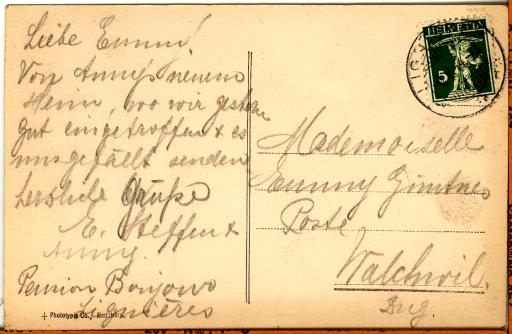 Liebe Emmy!
Von Anny's neuem
Heim, wo wir gestern
gut eingetroffen & es
uns gefällt senden
herzliche Grüße
E. Steffen &
Anny.
Pension Bonjour
Lignières
Phototypie Co., Neuchâtel
HELVETIA
5
Mademoiselle
Emmy
Poste
Walchwil.
Zug.